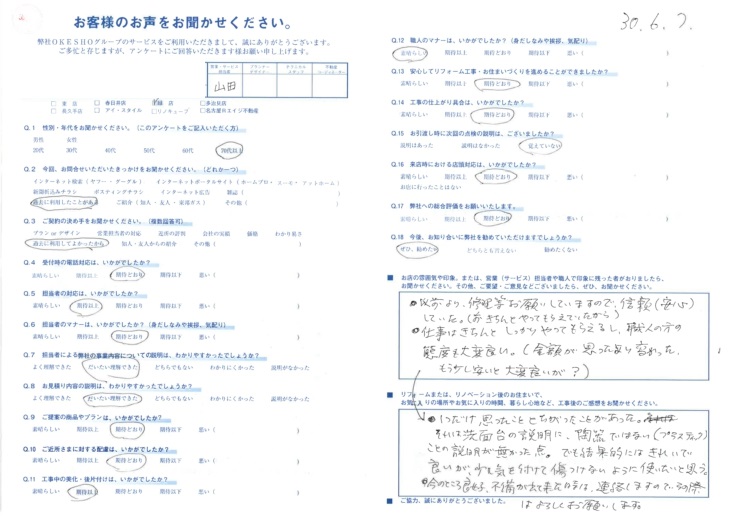 お客様のお声をお聞かせください。
弊社OKESHOグループのサービスをご利用いただきまして、誠にありがとうございます。
お客さまとともに歩み、アンケートにご回答いただきます様お願い申し上げます。
山田
春日井店
多治見店
長久手店
アイ・スタイル
リノキューブ
名古屋ロエイジ不動産
Q.1 性別・年代をお聞かせください。(このアンケートをご記入いただく方)
男性 女性
20代 30代 40代 50代 60代 70代以上
Q.2 今回、お問合せいただいたきっかけをお聞かせください。(どれか一つ)
インターネット検索(ヤフー・グーグル) インターネットポータルサイト(ホームプロ・スーモ・アットホーム)
新聞折込みチラシ ポスティングチラシ インターネット広告 雑誌( )
過去に利用したことがある ご紹介(知人・友人・東邦ガス) その他( )
Q.3 ご契約の決め手をお聞かせください。(複数回答可)
プラン or デザイン 営業担当者の対応 近所の評判 会社の実績 価格 わかり易さ
過去に利用してよかったから 知人・友人からの紹介 その他( )
Q.4 受付時の電話対応は、いかがでしたか?
素晴らしい 期待以上 期待どおり 期待以下 悪い( )
Q.5 担当者の対応は、いかがでしたか?
素晴らしい 期待以上 期待どおり 期待以下 悪い( )
Q.6 担当者のマナーは、いかがでしたか?(身だしなみや挨拶、気配り)
素晴らしい 期待以上 期待どおり 期待以下 悪い( )
Q.7 担当者による弊社の事業内容についての説明は、わかりやすかったでしょうか?
よく理解できた だいたい理解できた どちらでもない わかりにくかった 説明がなかった
Q.8 お見積り内容の説明は、わかりやすかったでしょうか?
よく理解できた だいたい理解できた どちらでもない わかりにくかった 説明がなかった
Q.9 ご提案の商品やプランは、いかがでしたか?
素晴らしい 期待以上 期待どおり 期待以下 悪い( )
Q.10 ご近所さまに対する配慮は、いかがでしたか?
素晴らしい 期待以上 期待どおり 期待以下 悪い( )
Q.11 工事中の美化・後片付けは、いかがでしたか?
素晴らしい 期待以上 期待どおり 期待以下 悪い( )
30.6.7.
Q.12 職人のマナーは、いかがでしたか?(身だしなみや挨拶、気配り)
素晴らしい 期待以上 期待どおり 期待以下 悪い( )
Q.13 安心してリフォーム工事・お住まいづくりを進めることができましたか?
素晴らしい 期待以上 期待どおり 期待以下 悪い( )
Q.14 工事の仕上がり具合は、いかがでしたか?
素晴らしい 期待以上 期待どおり 期待以下 悪い( )
Q.15 お引渡し時に次回の点検の説明は、ございましたか?
説明はあった 説明はなかった 覚えていない
Q.16 来店時における店頭対応は、いかがでしたか?
素晴らしい 期待以上 期待どおり 期待以下 悪い( )
お店に行ったことはない
Q.17 弊社への総合評価をお願いいたします。
素晴らしい 期待以上 期待どおり 期待以下 悪い( )
Q.18 今後、お知り合いに弊社を勧めていただけますでしょうか?
ぜひ、勧めたい どちらとも言えない 勧めたくない
■ お店の雰囲気や印象、または、営業(サービス)担当者や職人で印象に残った者がおりましたら、
お聞かせください。その他、ご要望・ご意見などございましたら、ぜひ、お聞かせください。
●以前より、修理等お願いしていますので、信頼(安心)
していた。(おきちんとやってもらえていたから)
●仕事はきちんとしっかりやってもらえるし、職人の方の
態度も大変良い。(金額が思ったより
もう少し安いと大変良いが?)
■ リフォームまたは、リノベーション後のお住まいで、
お気に入りの場所やお気に入りの時間、暮らし心地など、工事後のご感想をお聞かせください。
●1つだけ思ったこととちがったことがあった。
それは洗面台の説明に、陶器ではない(プラスティック)
ことの説明が無かった点。でも結果的にはきれいで
良いが、少し気を付けて傷つけないように使いたいと思う。
●今のところ良好、不備が出て来た時は、連絡しますのでその際
はよろしくお願いします。
■ ご協力、誠にありがとうございました。